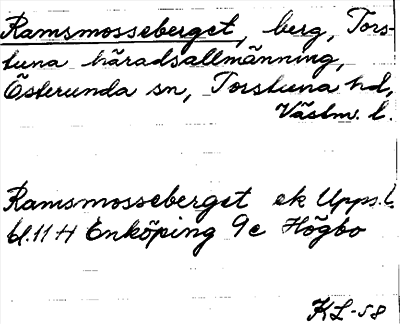 Ramsmosseberget, berg, Tors-
tuna häradsallmänning,
Österunda sn, Torstuna hd,
Västm. l.
Ramsmosseberget ek Upps. l.
bl. 11 H Enköping 9c Högbo
KL-58